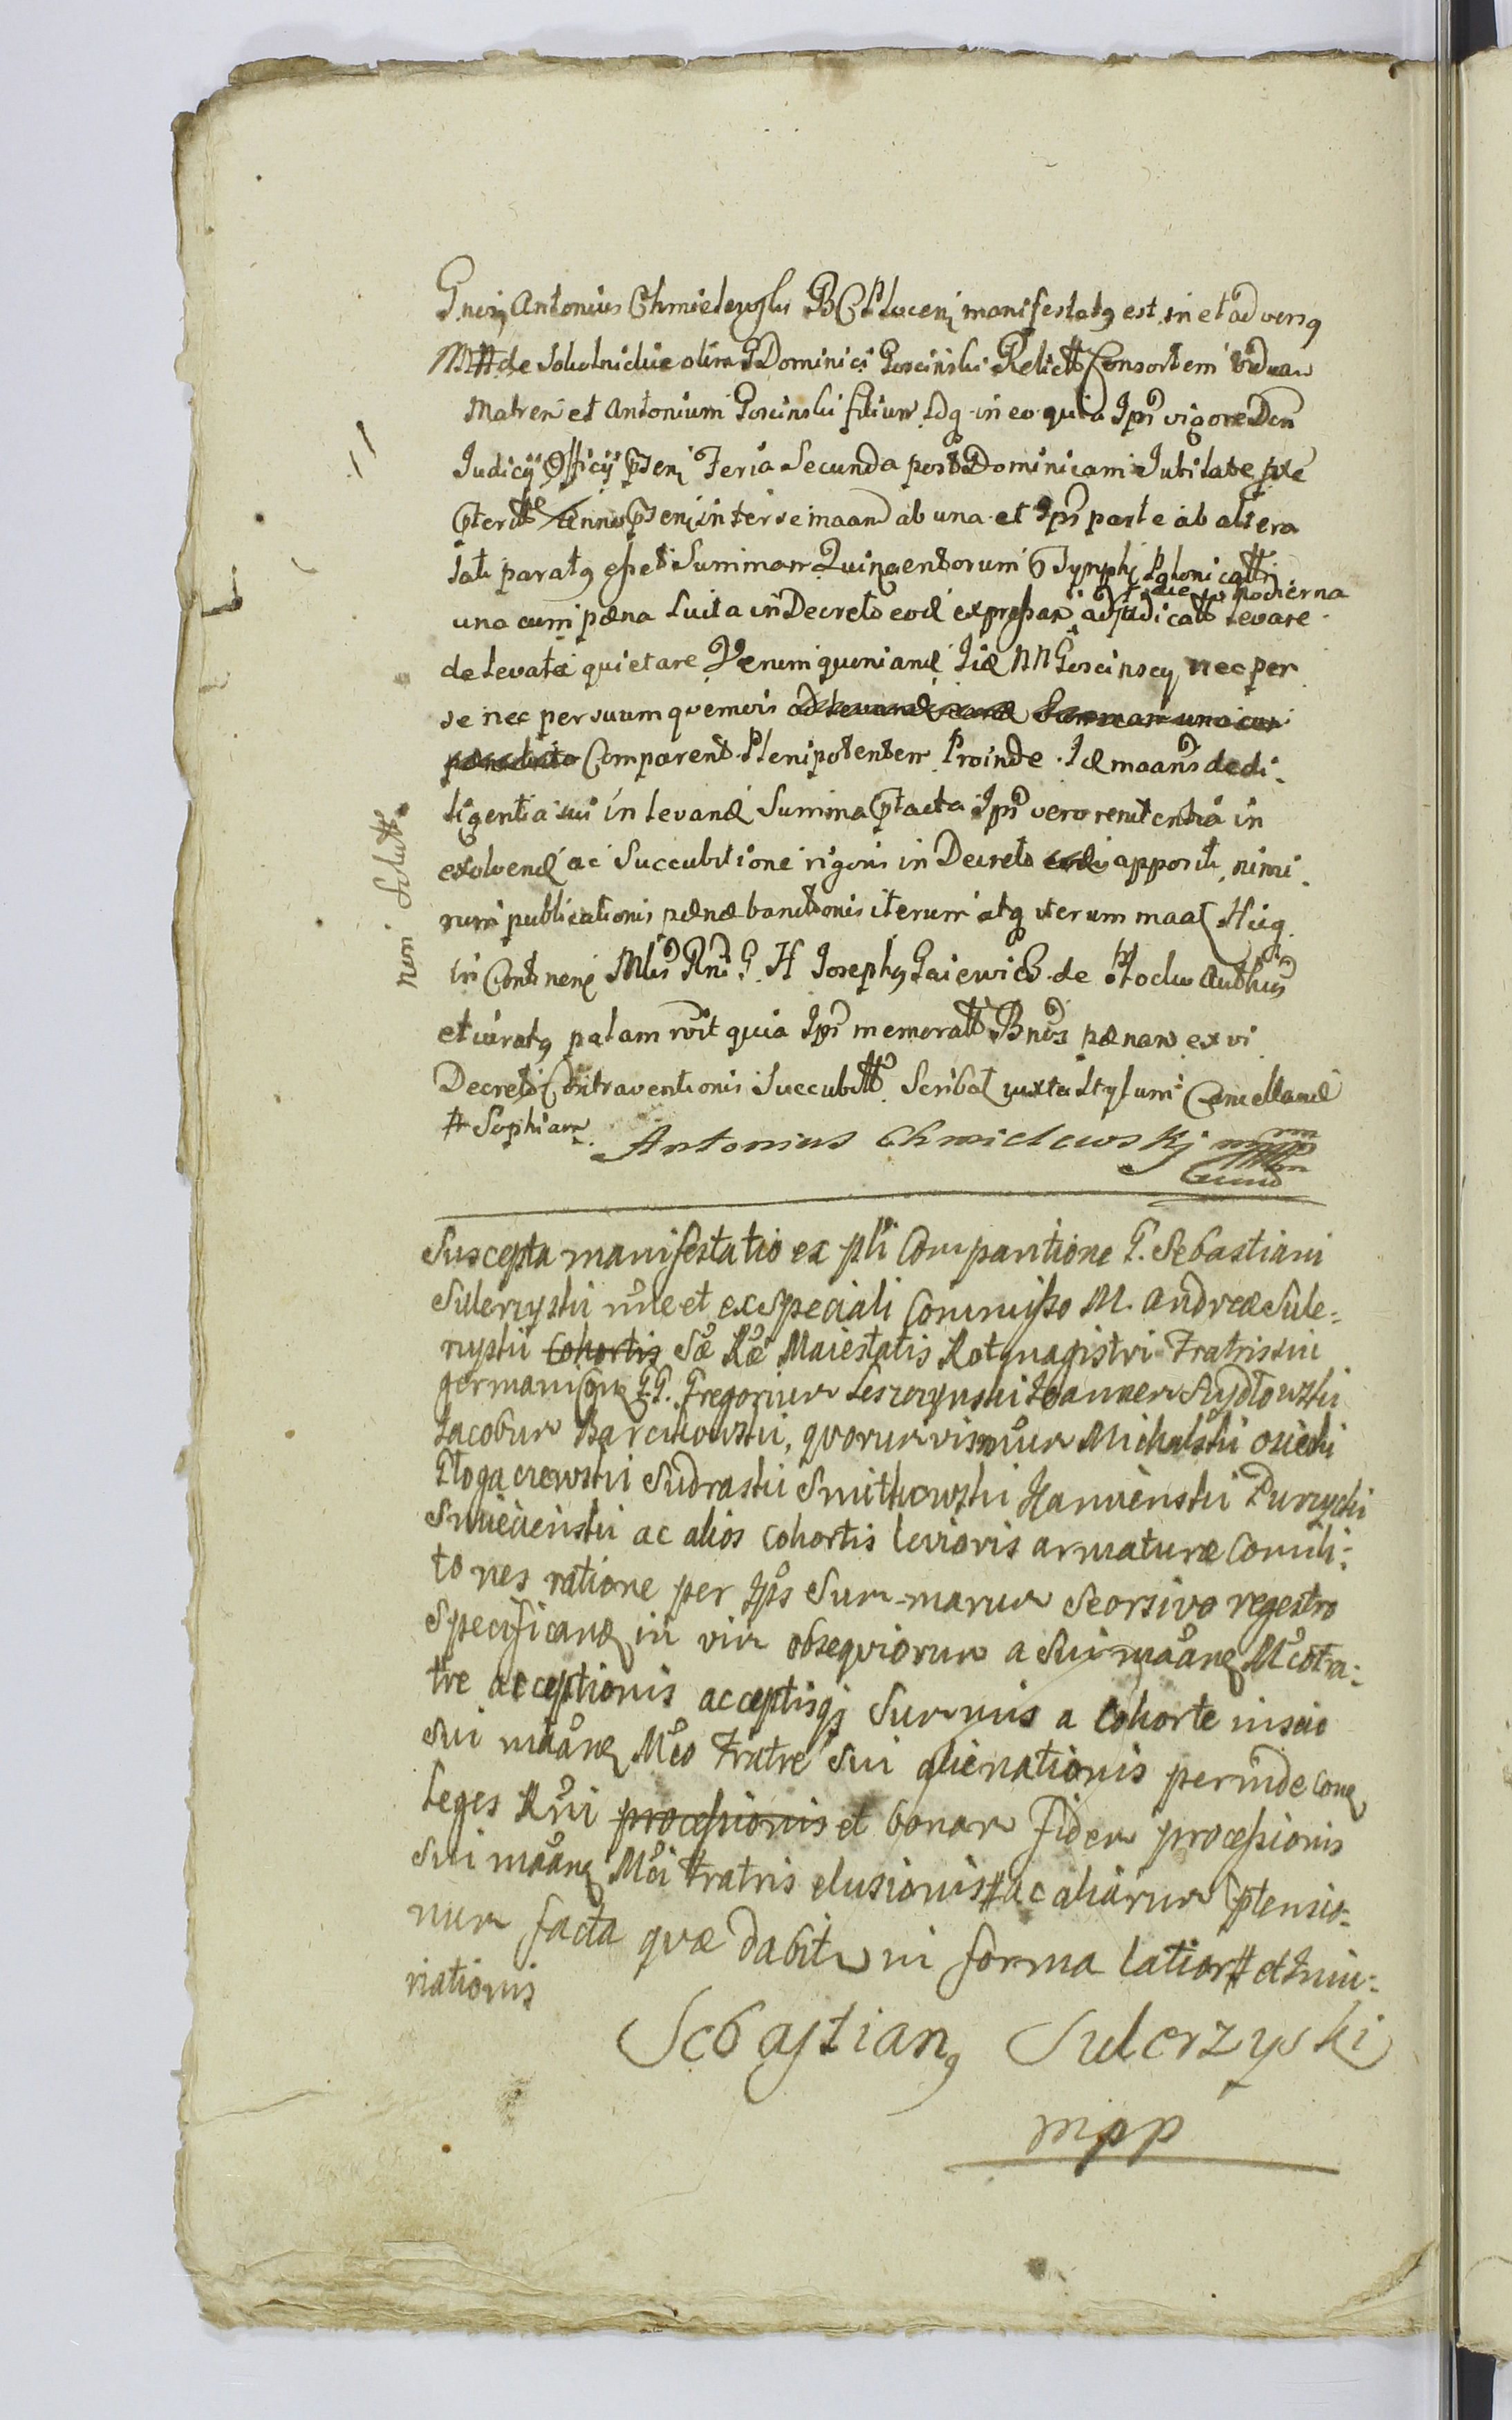 Gnus Antonius Chmielewski B C P Lucens manifestatq est in et adversq
M # de Sokolnickie olim G Dominici Goscinski Relictt Consortem viduam
Matrem et Antonium Goscinski filium Idq in eo quia Ipsi vigore Dni
Judicij Officij Psens Feria Secunda post Dominicam Jubilate
Pteritt Anno Psens inter se maand ab una et Ipsi parte ab altera
lati paratq esset Summam Quingentorum Tymphs Polonicatt
die hodierna
una cum pæna luita in Decreto eod expressam adjudicatt levare
de levata quietare Verum quoniam Iid NN Goscinscy nec per
se nec per suum quemvis ad levand eand Summam una cum
pæna luita Comparent Plenipotentem Proinde Id maans de di-
ligentia sui in levand Summa Ptacta Ipsi vero renitentia in
exolvend ac Succubitione rigoris in Decreto eod apposit, nimi-
rum publicationis pænæ bannitionis iterum atq iterum maat Hicq
in Continens Mlis Rni G. H Josephq Gaiewicz de Płocko Authus
et iuratq palam rvit quia Ipsi memoratt Bnos pænam ex vi
Decreti Contraventionis Succubtt Scribat iuxta stylum Cancellariæ
# Sophiam
Antonius Chmielewskj mm
non Solutt
Suscepta manifestatio ex pli Comparitione G. Sebastiani
Sulerzyski nne et ex Speciali Commisso M. Andreæ Sule-
rzyski Cohortis Sæ Ræ Maiestatis Rotmagistri Fratris sui
germani Con GG. Gregorium Leszczynski Joannem Szydłowski
Jacobum Barcikowski, quorumvismum Michalski osiecki
Głogaczewski Sudraski Smitkowski Kanienski Purzycki
Smiecienski ac alios Cohortis levioris armaturæ Comili-
tones ratione per Ipos Summarum Seorsivo regestro
Specificand in vim obsequiorum a Sui maang Mco fra-
tre acceptionis acceptisqj Summis a Cohorte inscio
Sui maang Mco Fratre Sui alienationis perinde Cong
Leges Rni processionis et bonam fidem processionis
Sui maang Mci Fratris elusionis # ac aliarum Ptensio-
num facta quæ dabitur in forma latiori # et Iniu-
riationis
Sebastianq Sulerzyski
mpp